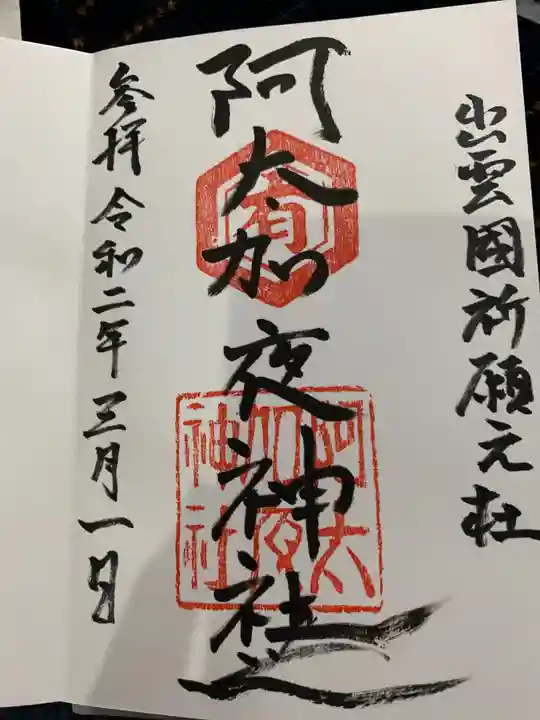 出雲國祈願元社
阿太加夜神社
参拝令和二年三月一日
有
阿太
加夜
神社